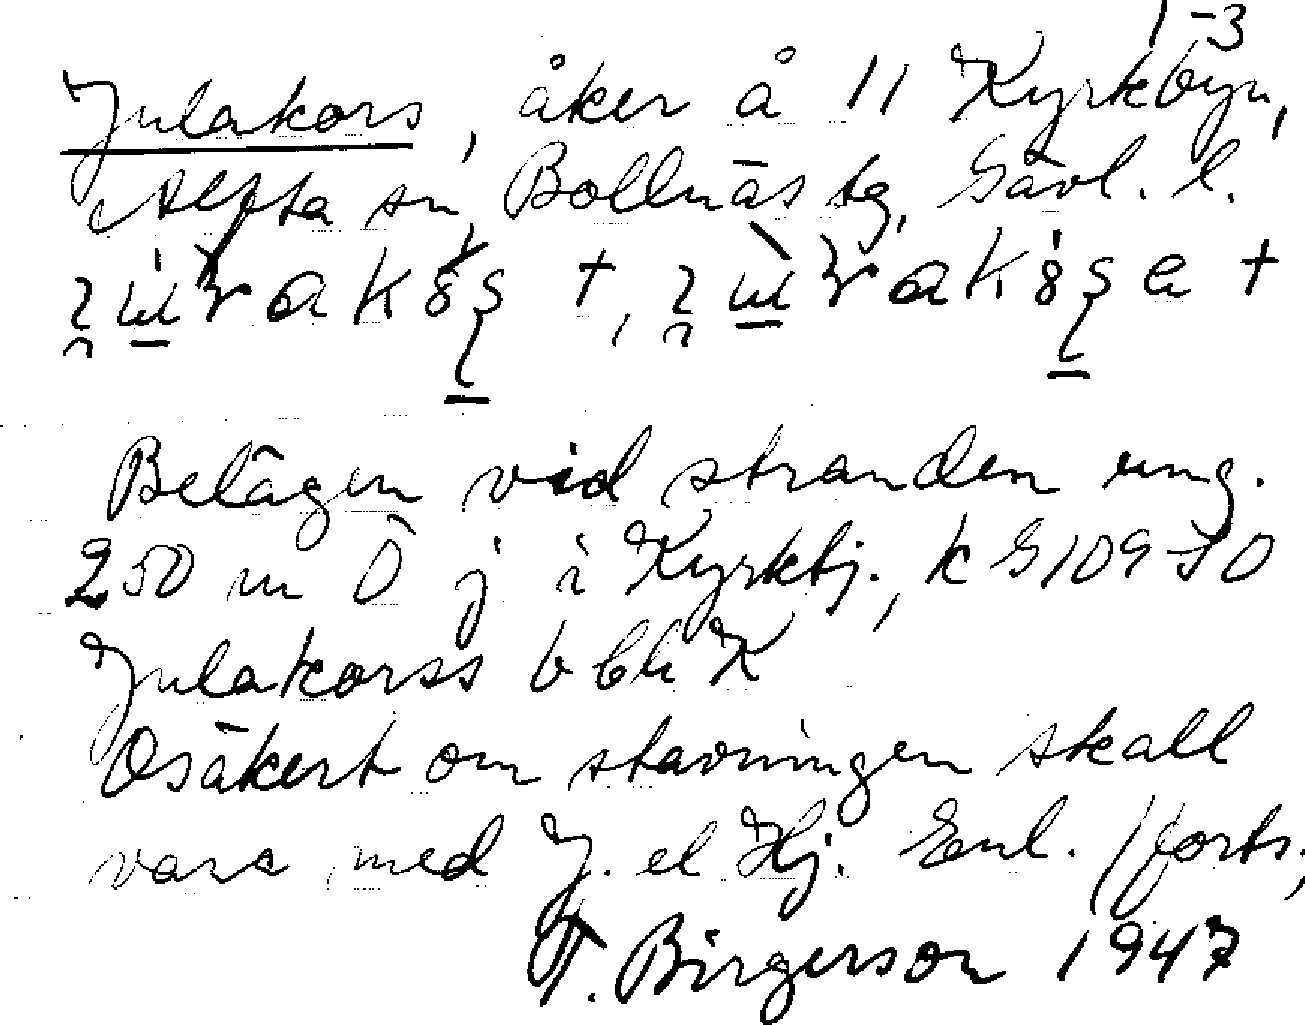 1-3
Julakors, åker å 11 Kyrkbyn,
Alfta sn, Bollnäs tg, Gävl. l.
Belägen vid stranden ung.
250 m Ö j i Kyrkbj., k G 109 70
Julakorss b bli K
Osäkert om stavningen skall
vara med J. el Hj. Enl. /forts,
T. Birgerson 1947